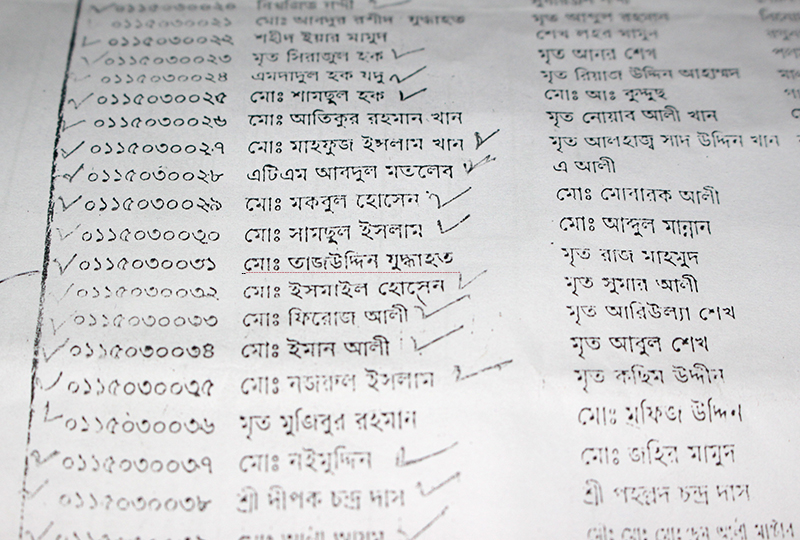 ০১১৫০৩০০২১ মোঃ আবদুর রশীদ যুদ্ধাহত মৃত আব্দুল রহমান
০১১৫০৩০০২২ শহীদ ইয়ার মামুদ শেখ লহর মামুদ
০১১৫০৩০০২৩ মৃত সিরাজুল হক মৃত আনর শেখ
০১১৫০৩০০২৪ এমদাদুল হক যদু মৃত রিয়াজ উদ্দিন আহাম্মদ
০১১৫০৩০০২৫ মোঃ শামছুল হক মোঃ আঃ কুদ্দুছ
০১১৫০৩০০২৬ মোঃ আতিকুর রহমান খান মৃত নোয়াব আলী খান
০১১৫০৩০০২৭ মোঃ মাহফুজ ইসলাম খান মৃত আলহাজ্ব সাদ উদ্দিন খান
০১১৫০৩০০২৮ এটিএম আবদুল মতলেব এ আলী
০১১৫০৩০০২৯ মোঃ মকবুল হোসেন মোঃ মোবারক আলী
০১১৫০৩০০৩০ মোঃ সামছুল ইসলাম মোঃ আব্দুল মান্নান
০১১৫০৩০০৩১ মোঃ তাজউদ্দিন যুদ্ধাহত মৃত রাজ মাহমুদ
০১১৫০৩০০৩২ মোঃ ইসমাইল হোসেন মৃত সুমার আলী
০১১৫০৩০০৩৩ মোঃ ফিরোজ আলী মৃত আরিউল্যা শেখ
০১১৫০৩০০৩৪ মোঃ ইমান আলী মৃত আবুল শেখ
০১১৫০৩০০৩৫ মোঃ নজরুল ইসলাম মৃত কছিম উদ্দীন
০১১৫০৩০০৩৬ মৃত মুজিবুর রহমান মোঃ মফিজ উদ্দিন
০১১৫০৩০০৩৭ মোঃ নইমুদ্দিন মোঃ জহির মামুদ
০১১৫০৩০০৩৮ শ্রী দীপক চন্দ্র দাস শ্রী চন্দ্র দাস